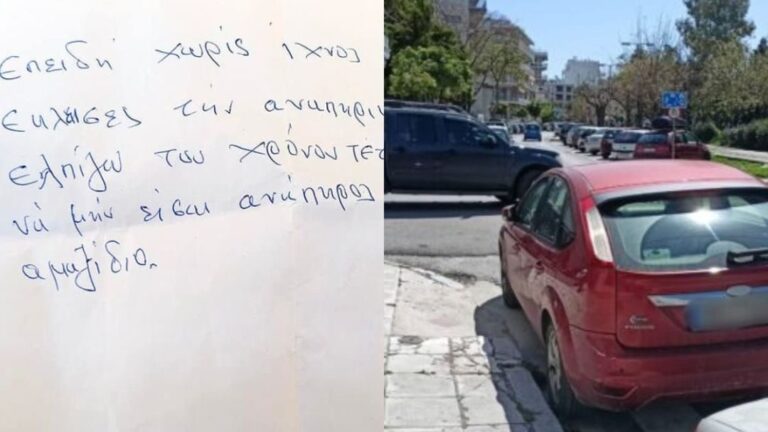 Επειδή χωρίς ίχνος
εκλεισες την αναπηρι
Ελπίζω του χρόνου τετ
νὰ μήν είσαι ανάπηρος
αμαξίδιο.